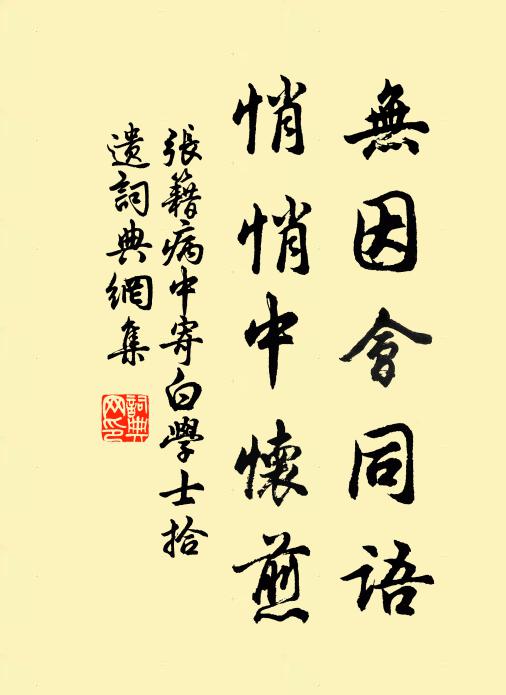 無因會同語
悄悄中懷煎
張籍病中寄白學士拾
遺詞典網集
詞典
网印